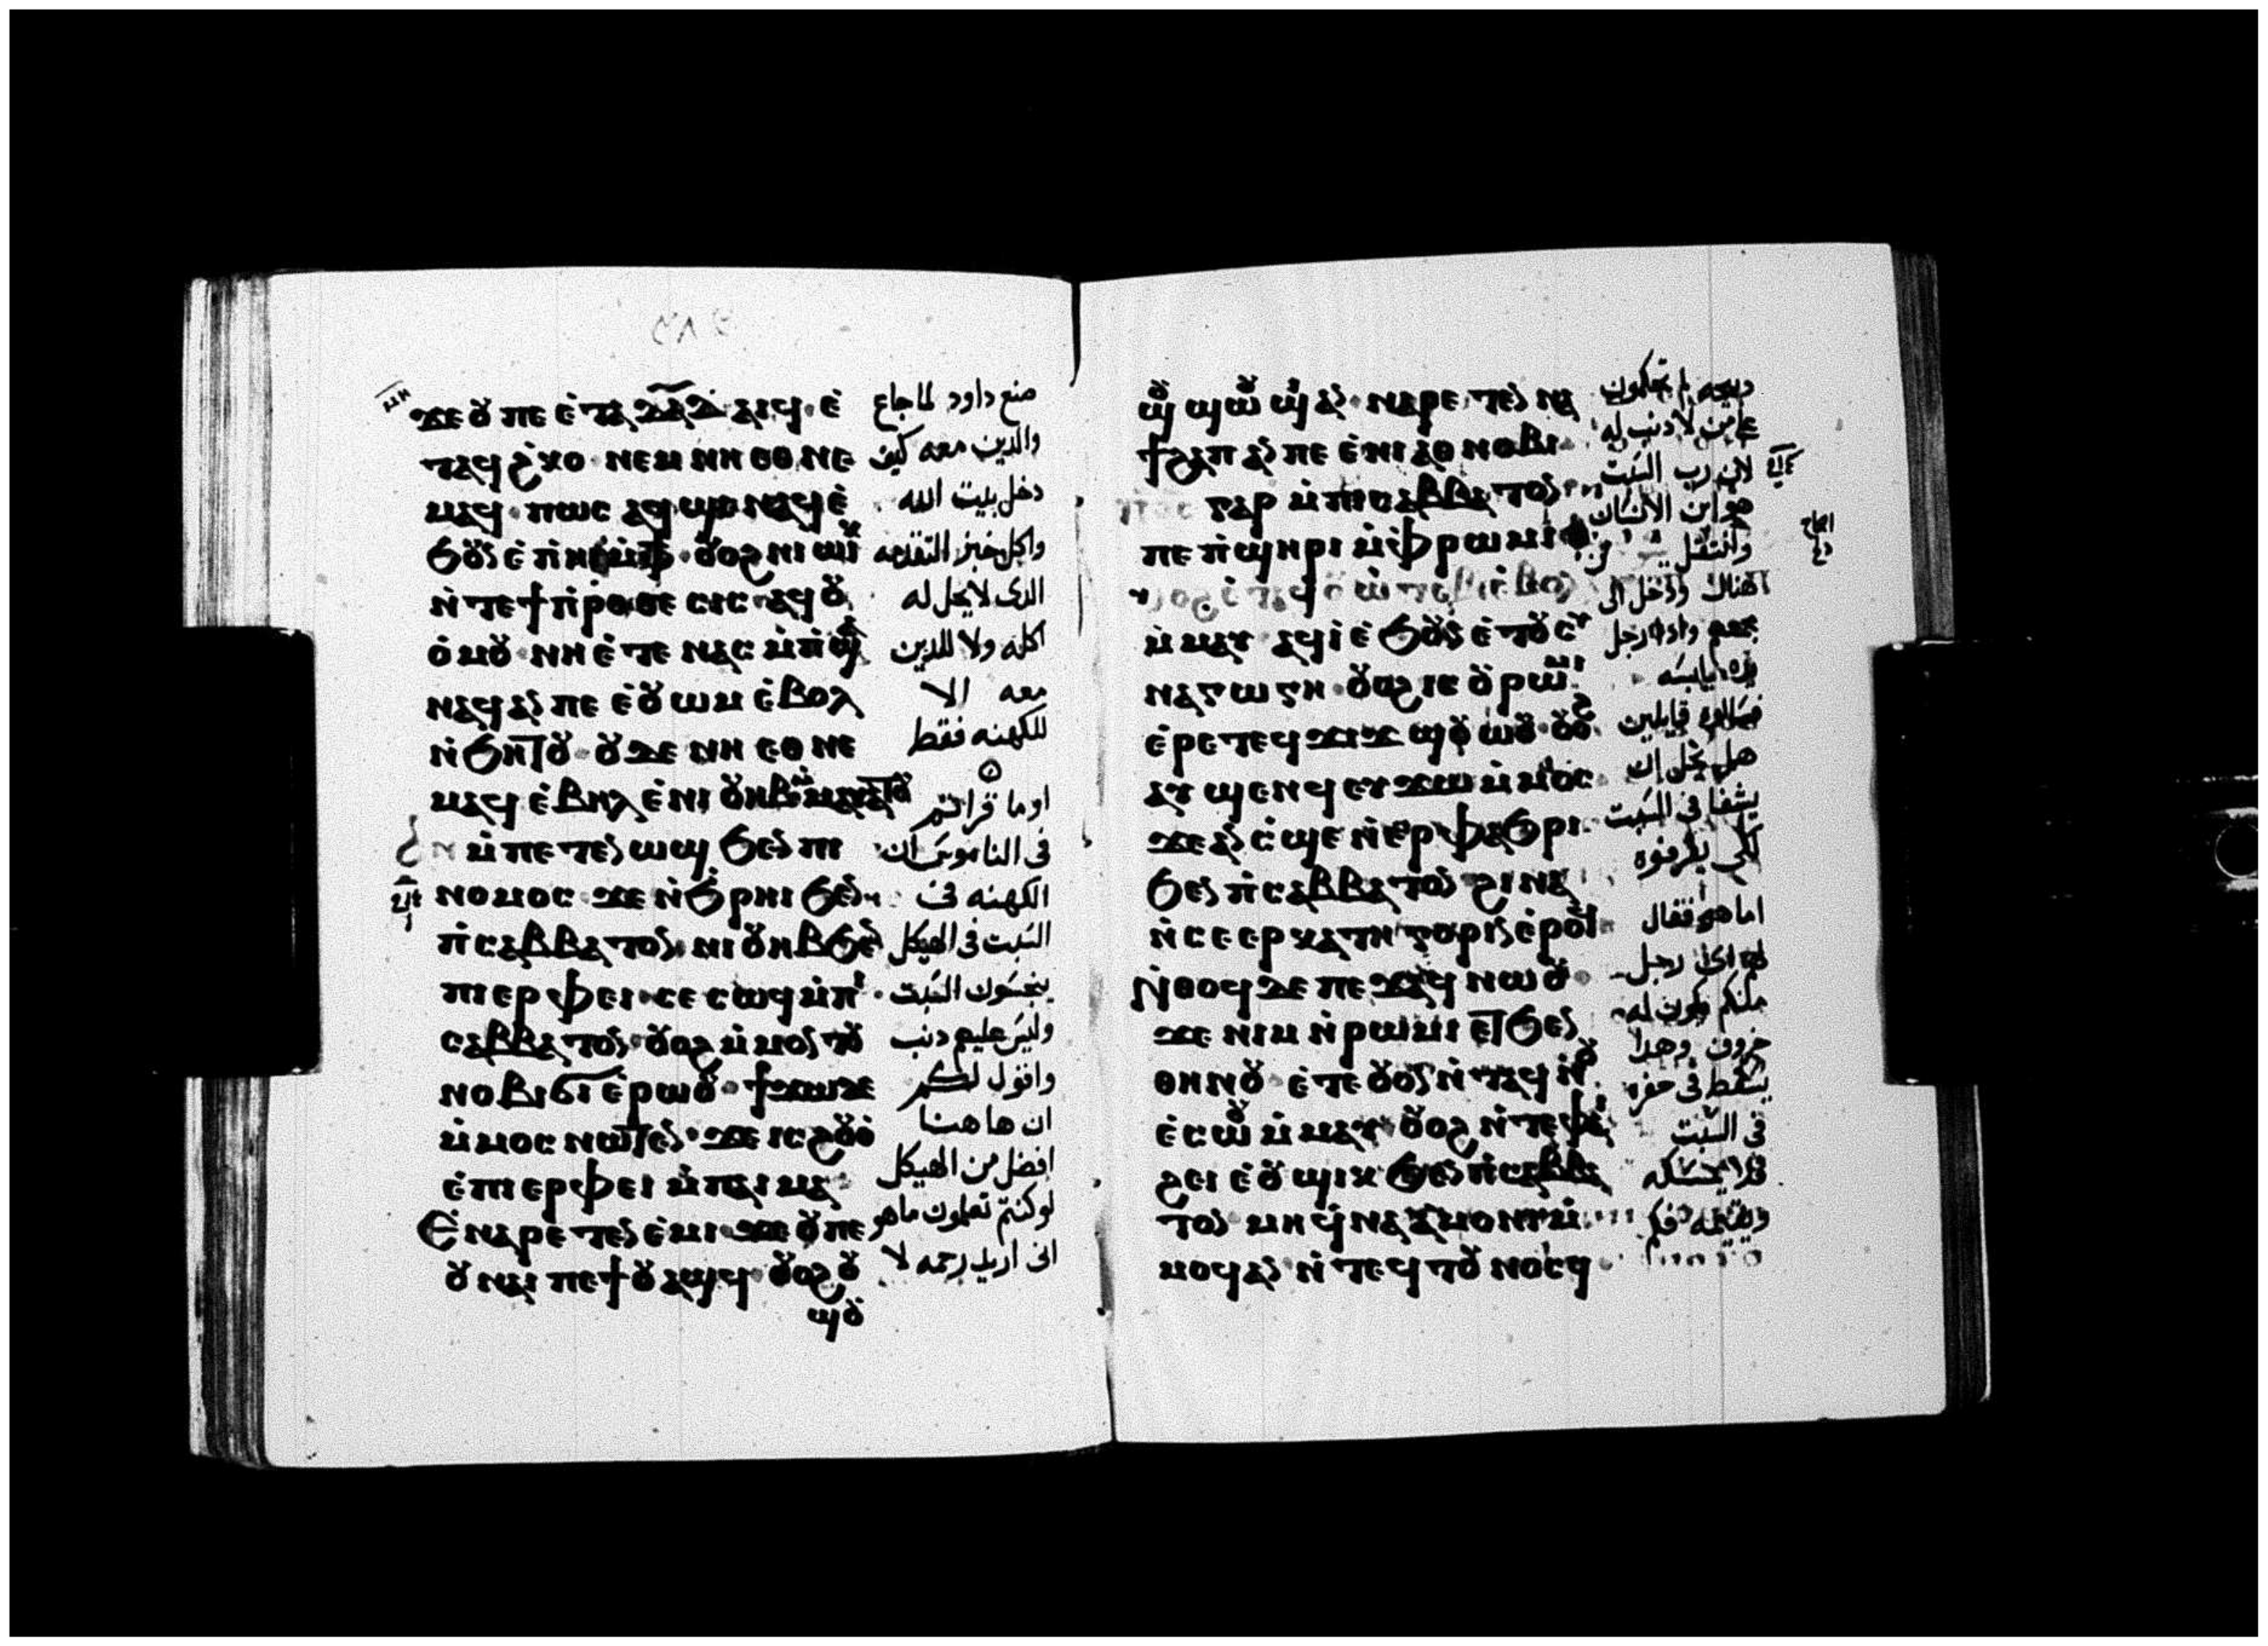 ϫⲉ ⲟⲩ ⲡⲉ ⲉ̀ⲧⲁ ⲇⲁⲇ ⲁⲓϥ ⲉ̀
ⲧⲁϥϩ̀ⲕⲟ ⲛⲉⲙ ⲛⲏ ⲉⲑⲛⲉ
ⲙⲁϥ ⲡⲱⲥ ⲁϥϣⲉ ⲛⲁϥ ⲉ̀
ⲛ̀ⲧⲉ ϯⲡ̀ⲣⲟⲑⲉⲥⲓⲥ ⲁϥⲟⲩ
ⲟ̀ⲙⲟⲩ ⲛⲏ ⲉ̀ⲧⲉ ⲛⲁⲥⲙ̀ⲡ̀ϣⲁ
ⲛⲁϥ ⲁⲛ ⲡⲉ ⲉ̀ⲟⲩⲱⲙ ⲉ̀ⲃⲟⲗ
ⲛ̀ϧⲏⲧⲟⲩ ⲟⲩⲇⲉ ⲛⲏ ⲉⲑⲛⲉ
ⲙ̀ⲡⲉⲧⲉⲛⲱϣ ϧⲉⲛ ⲡⲓ
ⲛⲟⲙⲟⲥ ϫⲉ ⲛ̀ϧ̀ⲣⲏⲓ ϧⲉⲛ
ⲡ̀ⲥⲁⲃⲃⲁⲧⲟⲛ ⲛⲓⲟⲩⲏⲃ ϧⲉⲛ
ⲡⲓⲉⲣⲫⲉⲓ ⲥⲉⲥⲱϥ ⲙ̀ⲡⲓ
ⲥⲁⲃⲃⲁⲧⲟⲛ ⲟⲩⲟϩ ⲙ̀ⲙⲟⲛ ⲧⲟⲩ
ⲛⲟⲃⲓ ⲉ̀ⲣⲱⲟⲩ ϯϫⲱ ⲇⲉ
ⲙ̀ⲙⲟⲥ ⲛⲱⲧⲉⲛ ϫⲉ ⲓⲥ ϩⲟⲩⲟ̀
ⲉ̀ⲡⲓⲉⲣⲫⲉⲓ ⲙ̀ⲡⲁⲓⲙⲁ
Ⲉ̀ⲛⲁⲣⲉⲧⲉⲛⲉ̀ⲙⲓ ϫⲉ ⲟⲩ ⲡⲉ
ⲟⲩⲛⲁⲓ ⲡⲉϯⲟⲩⲁϣϥ ⲟⲩⲟϩ ⲟⲩ
ϣⲟⲩ
صنع داود لما جاع
والدين معه كيف
دخل بيت الله
واكل خبز التقدمه
الدى لا يحل له
اكله ولا للدين
معه الا
للكهنه فقط
اوما قراتم
فى الناموس ان
الكهنه فى
السبت فى الهيكل
ينجسون السبت
وليس عليهم دنب
واقول لكم
ان هاهنا
افضل من الهيكل
لوكنتم تعلمون ماهو
انى اريد رحمه لا
ϣⲟⲩϣⲱⲟⲩϣⲓ ⲁⲛ ⲛⲁⲣⲉⲧⲉⲛⲛⲁ
ϯϩⲁⲡ ⲁⲛ ⲡⲉ ⲉ̀ⲛⲓⲁⲑⲛⲟⲃⲓ
ⲅⲁⲣ ⲙ̀ⲡⲓⲥⲁⲃⲃⲁⲧⲟⲛ
ⲡⲉ ⲡ̀ϣⲏⲣⲓ ⲙ̀ⲫ̀ⲣⲱⲙⲓ
ⲙ̀ⲙⲁⲩ ⲁϥⲓ̀ ⲉ̀ϧⲟⲩⲛ ⲉ̀ⲧⲟⲩⲥⲩ
ⲛⲁⲅⲱⲅⲏ ⲟⲩⲟϩ ⲓⲥ ⲟⲩⲣⲱⲙⲓ
ⲉ̀ⲣⲉ ⲧⲉϥϫⲓϫ ϣⲟⲩⲱⲟⲩ ⲟⲩⲟϩ
ⲁⲩϣⲉⲛϥ ⲉⲩϫⲱ ⲙ̀ⲙⲟⲥ
ϫⲉ ⲁⲛ ⲥ̀ϣⲉ ⲛ̀ⲉⲣⲫⲁϧⲣⲓ
ϧⲉⲛ ⲡ̀ⲥⲁⲃⲃⲁⲧⲟⲛ ϩⲓⲛⲁ
ⲛ̀ⲥⲉⲉⲣⲕⲁⲧⲏⲅⲟⲣⲓⲛ ⲉ̀ⲣⲟϥ
Ⲛ̀ⲑⲟϥ ⲇⲉ ⲡⲉϫⲁϥ ⲛⲱⲟⲩ
ϫⲉ ⲛⲓⲙ ⲛ̀ⲣⲱⲙⲓ ⲉⲧϧⲉⲛ
ⲑⲏⲛⲟⲩ ⲉ̀ⲧⲉ ⲟⲩⲟⲛⲛ̀ⲧⲁϥ ⲛ̀ⲟⲩ
ⲉ̀ⲥⲱⲟⲩ ⲙ̀ⲙⲁⲩ ⲟⲩⲟϩ ⲛ̀ⲧⲉ ⲫⲁⲓ
ϩⲉⲓ ⲉ̀ⲟⲩϣⲓⲕ ϧⲉⲛ ⲡ̀ⲥⲁⲃⲃⲁ
ⲧⲟⲛ ⲙⲏ ϥ̀ⲛⲁⲁ̀ⲙⲟⲛⲓ ⲙ̀
ⲙⲟϥ ⲁⲛ ⲛ̀ⲧⲉϥⲧⲟⲩⲛⲟⲥϥ
دبيحه لم تحكمون
على من لا دنب له
لان رب السبت
هو ابن الانسان
وانتقل من
هناك ودخل الى
مجمعهم وادا رجل
يده يابسه
فسالوه قايلين
هل يحل ان
يشفا فى السبت
لكى يقرفوه
اما هو فقال
لهم اى رجل
منكم يكون له
خروف وهدا
يسقط فى حفره
فى السبت
فلا يمسكه
ويقيمه فكم